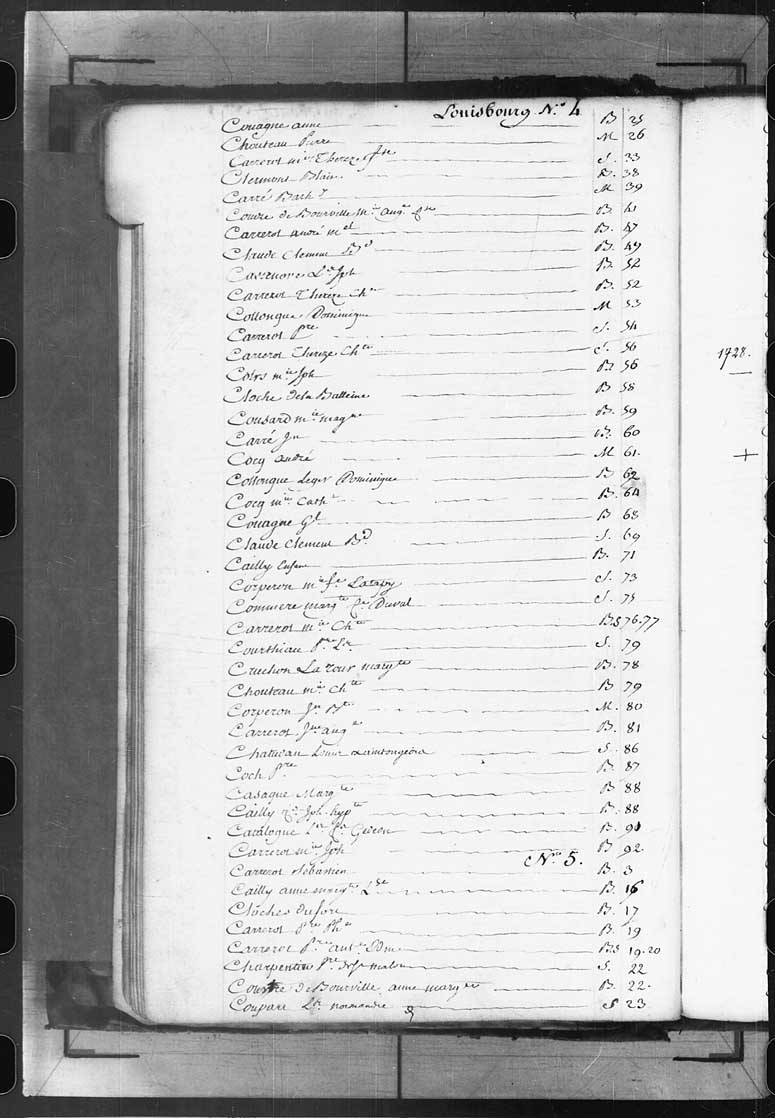 Louisbourg N.º 4
Couagne anne B 25
Chouteau Pierre M 26
Carrerot m.ie Thereze S. 33
Clermont Blain B. 38
Carré Barth.y M 39
Coudre de Bourville m.ie ang.e B. 41
Carrerot andré m.el B. 47
Claude Clement B.d B. 49
Casenove L.s Jph B. 52
Carrerot Thereze Ch.te B. 52
Collongue Dominique M 53
Carrerot p.re S. 54
Carrerot Thereze Ch.te S. 56
Colrs m.ie Jph B. 56
Cloche dela Balleine B 58
Cousard m.ie magne B. 59
Carré Jn B. 60
Cocq andré M 61.
Collongue Leger Dominique B 62
Cocq m.ie Cath.e B. 64
Couagne G.l B 68
Claude Clement B.d S. 69
Cailly Enfant B. 71
Corperon m.ie Larapy S. 73
Commere marg.te Duval S. 75
Carrerot m.ie Ch.te B S 76.77
Courthiau P.re L.s S. 79
Cruchon La Tour marg.te B. 78
Chouteau m.ie Ch.te B 79
Corperon Jn B.te M. 80
Carrerot Jne ang.e B. 81
Chateau Louis Xaintongeois S. 86
Coch P.re B. 87
Casaque Marg.te B 88
Cailly Jph hyp.te B. 88
Catalogne Gedeon B. 91
Carrerot m.ie Jph B 92.
N.º 5.
Carrerot Sebastien B. 3
Cailly anne marg.te L.se B. 16
Cloches dufort B. 17
Carrerot P.re Ph.e B. 19
Carrerot P.re ant.e Edm. B S 19.20
Charpentier P.re de St malo S. 22
Coudre de Bourville anne marg.te B. 22.
Coupare L.s normandie S 23
1728.
+